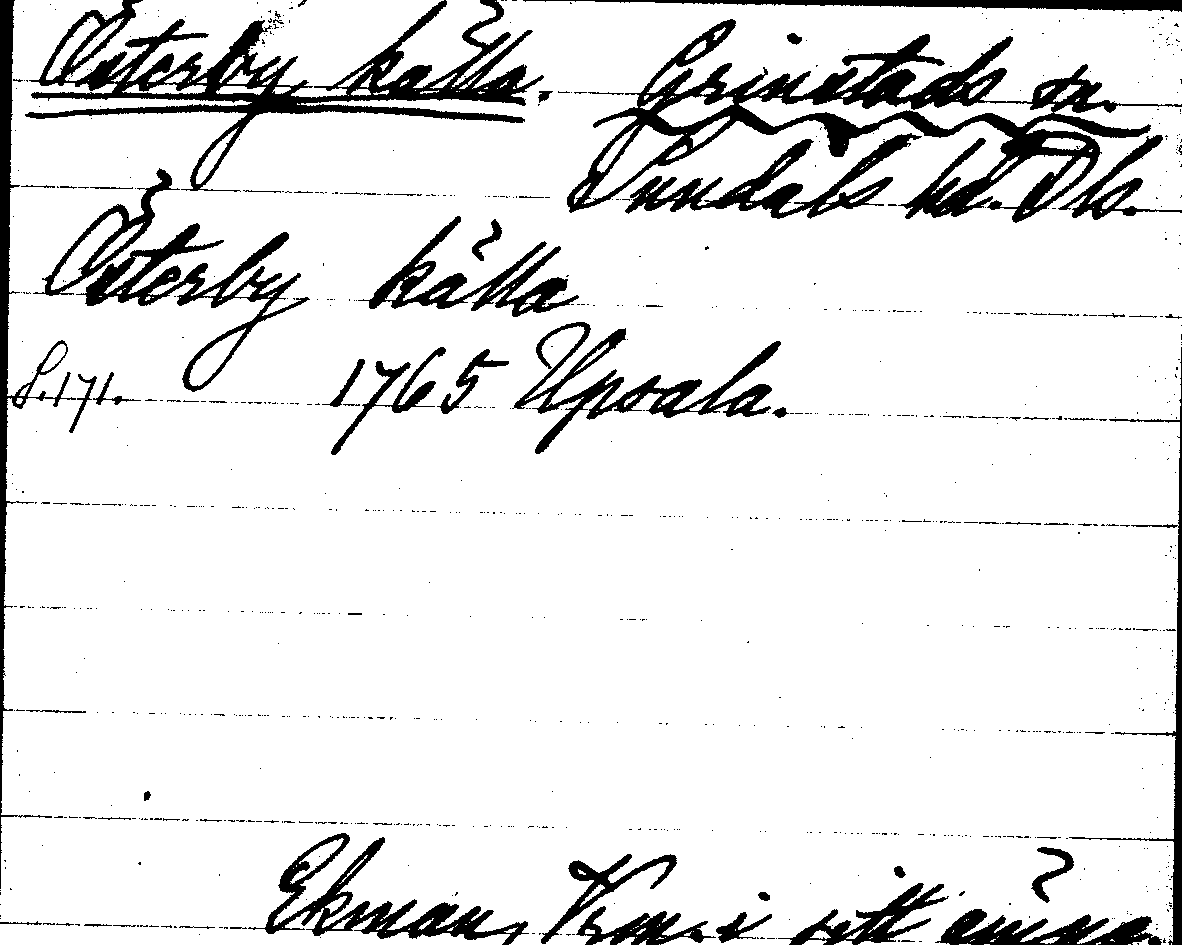 Österby källa. Grinstads sn.
Sundals hd. Dls.
Österby källa
S.171. 1765 Upsala.
Ekman, Vrml. i sitt ämne